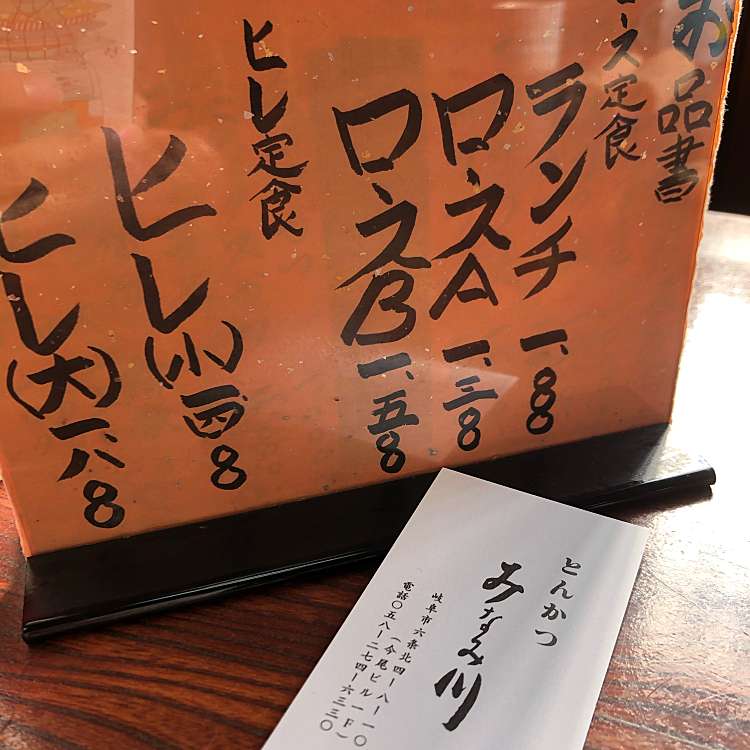 お品書
ース定食
ランチ 一、88
ロースA 一、三8
ロースB 一、五8
ヒレ定食
ヒレ(小) 一、四8
ヒレ(大) 一、八8
とんかつ
みなみ川
岐阜市六条北四ー八ー一〇
(今尾ビル一F)
電話〇五八ー二七四ー六三三〇